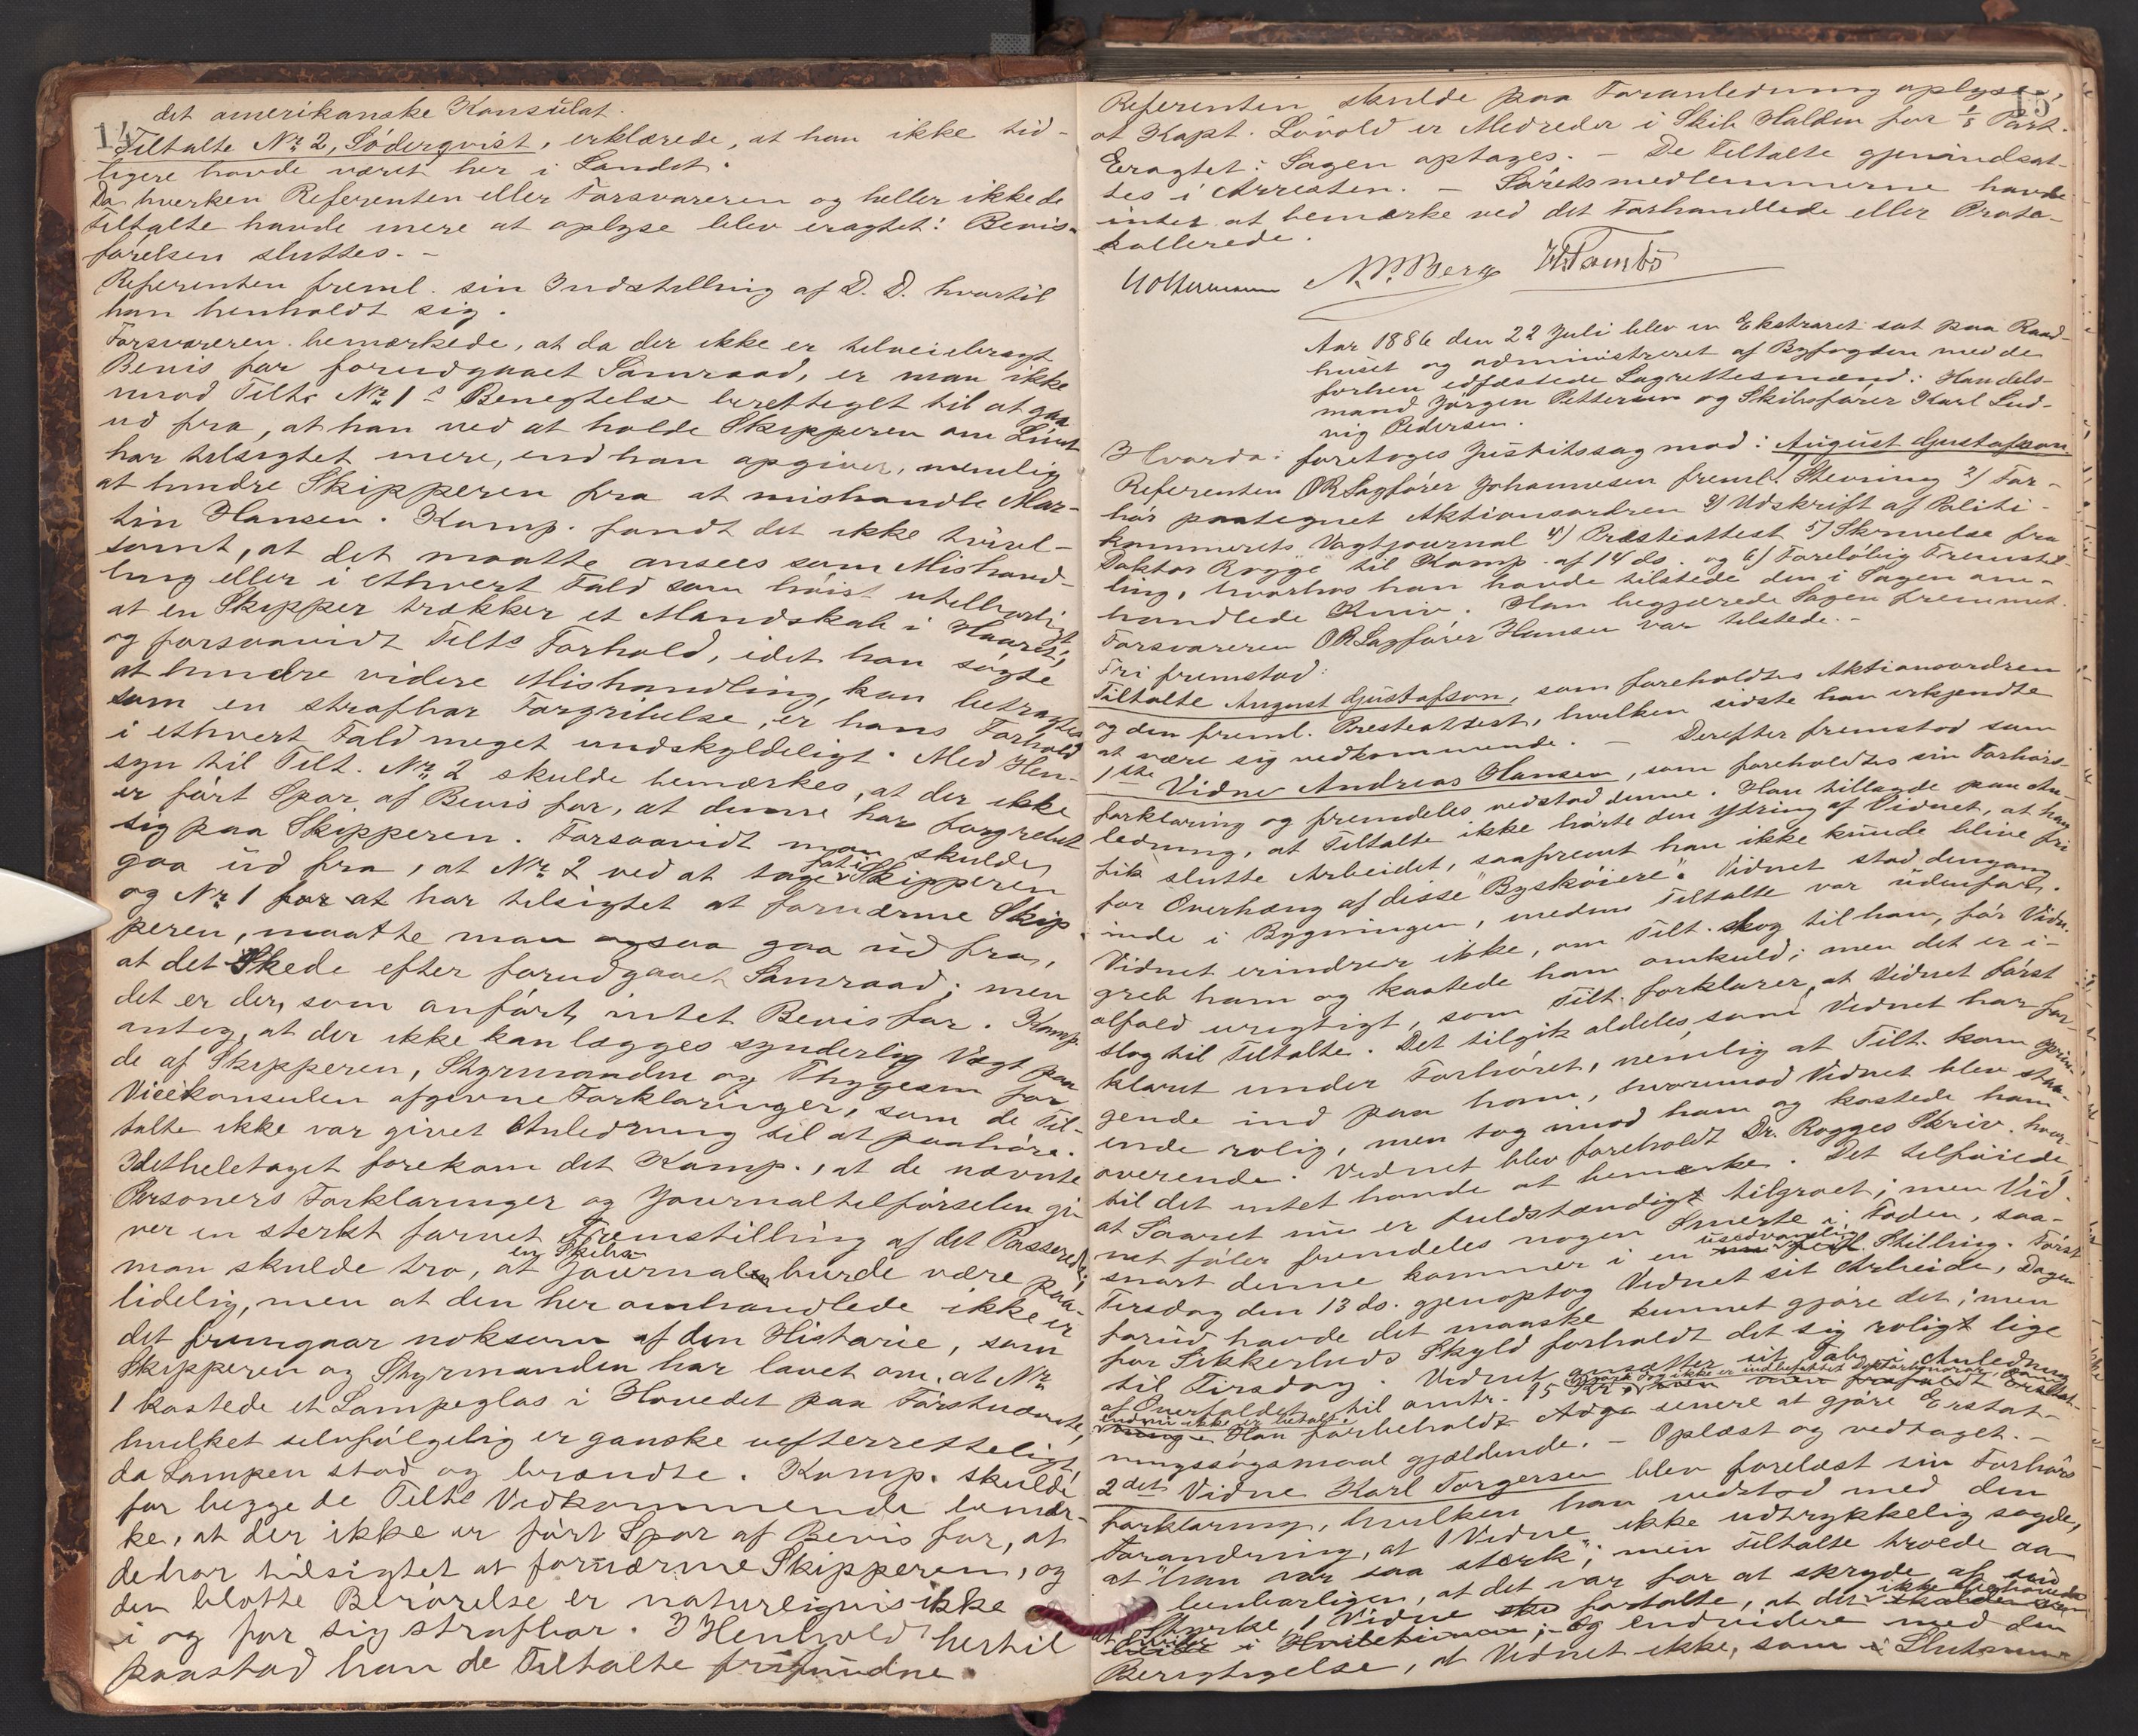 14
det amerikanske Konsulat.
Tiltalte No 2, Söderqvist, erklærede, at han ikke tid-
ligere havde været her i Landet.
Da hverken Referenten eller Forsvareren og heller ikke de
Tiltalte havde mere at oplyse blev eragtet: Bevis-
førelsen sluttes. -
Referenten freml. sin Indstilling af D. D. hvortil
han henholdt sig.
Forsvareren bemærkede, at da der ikke er tilveiebragt
Bevis for forudgaaet Samraad, er man ikke
mod Tilts No 1s Benegtelse berettiget til at gaa
ud fra, at han ved at holde Skipperen om Livet
har tilsigtet mere, end han opgiver, nemlig
at hindre Skipperen fra at mishandle Mar-
tin Hansen. Komp. fandt det ikke tvivl-
somt, at det maatte ansees som Mishand-
ling eller i ethvert Fald som høist utilbørligt,
at en Skipper trækker et Mandskab i Haaret,
og forsaavidt Tilts Forhold, idet han søgte
at hindre videre Mishandling, kan betragtes
som en strafbar Forgribelse, er hans Forhold
i ethvert Fald meget undskyldeligt. Med Hen-
syn til Tilt. No 2 skulde bemærkes, at der ikke
er ført Spor af Bevis for, at denne har forgrebet
sig paa Skipperen. Forsaavidt man skulde
gaa ud fra, at No 2 ved at tage fat i Skipperen
og No 1 for at har tilsigtet at fornærme Skip-
peren, maatte man ogsaa gaa ud fra,
at det Skede efter forudgaaet Samraad; men
det er der, som anført, intet Bevis for. Komp.
antog, at der ikke kan lægges synderlig Vægt paa
de af Skipperen, Styrmanden og Thygesen for
Vicekonsulen afgivne Forklaringer, som de Til-
talte ikke var givet Anledning til at paahøre.
Idetheletaget forekom det Komp., at de nævnte
Personers Forklaringer og Journaltilførselen gi-
ver en sterkt farvet Fremstilling af det Passerede;
man skulde tro, at en Skibs Journal burde være paa-
lidelig, men at den her omhandlede ikke er
det fremgaar noksom af den Historie, som
Skipperen og Styrmanden har lavet om, at No
1 kastede et Lampeglas i Hovedet paa Førstnævnte,
hvilket selvfølgelig er ganske uefterretteligt,
da Lampen stod og brændte. Komp. skulde
for begge de Tilts Vedkommende bemær-
ke, at der ikke er ført Spor af Bevis for, at
de har tilsigtet at fornærme Skipperen, og
den blotte Berørelse er naturligvis ikke
i og for sig strafbar. I Henhold hertil
paastod han de Tiltalte frifundne.
15
Referenten skulde paa Foranledning oplyse,
at Kapt. Lövold er Medreder i Skib Halden for 1/5 Part.
Eragtet: Sagen optages. - De Tiltalte gjenindsat-
tes i Arresten. - Søretsmedlemmerne havde
intet at bemærke ved det Forhandlede eller Proto-
kollerede.
N. P. Berg
Aar 1886 den 22 Juli blev en Ekstraret sat paa Raad-
huset og administreret af Byfogden med de
forhen edfæstede Lagrettesmænd: Handels-
mand Jørgen Pettersen og Skibsfører Karl Lud-
vig Pedersen.
Hvorda: foretoges Justitssag mod: August Gustafsson
Referenten ORSagfører Johannesen freml. 1) Stevning 2) For-
hør paategnet Aktionsordren 3) Udskrift af Politi-
kammerets Vagtjournal 4) Præsteattest 5) Skrivelse fra
Doktor Rogge til Komp. af 14 ds. og 6) Foreløbig Fremstil-
ling, hvorhos han havde tilstede den i Sagen om-
handlede Kniv. Han begjærede Sagen fremmet.
Forsvareren ORSagfører Hansen var tilstede. -
Fri fremstod:
Tiltalte August Gustafson, som foreholdtes Aktionsordren
og den freml. Presteattest, hvilken sidste han erkjendte
at være sig vedkommende. - Derefter fremstod som
1ste Vidne Andreas Hansen, som foreholdtes sin Forhørs-
forklaring og fremdeles vedstod denne. Han tillagde paa An-
ledning, at Tiltalte ikke hørte den Ytring af Vidnet, at han
fik slutte Arbeidet, saafremt han ikke kunde blive fri
for Overhæng af disse "Byskøiere". Vidnet stod dengang
inde i Bygningen, medens Tiltalte var udenfor.
Vidnet erindrer ikke, om Tilt. slog til ham, før Vidn.
greb ham og kastede ham omkuld; men det er i-
alfald urigtigt, som Tilt. forklarer, at Vidnet først
slog til Tiltalte. Det tilgik aldeles, som Vidnet har for-
klaret under Forhøret, nemlig at Tilt. kom sprin-
gende ind paa ham, hvorimod Vidnet blev staa-
ende rolig, men tog imod ham og kastede ham
overende. Vidnet blev foreholdt Dr. Rogges Skriv. hvor-
til det intet havde at bemærke. Det tilføiede,
at Saaret nu er fuldstændigt tilgroet; men Vid-
net føler fremdeles nogen Smerte i Foden, saa-
snart denne kommer i en usedvanlig Stilling. Først
Tirsdag den 13 ds. gjenoptog Vidnet sit Arbeide, Dagen
forud havde det maaske kunnet gjøre det; men
for Sikkerheds Skyld forholdt det sig roligt lige
til Tirsdag. Vidnet ansætter sit Tab i Anledning
af Overfaldet til omtr. 15 Kr. hvori dog ikke er indbefattet Doktorhonorar, som
endnu ikke er betalt. Han forbeholdt Adga senere at gjøre Erstat-
ningssøgsmaal gjældende. - Oplæst og vedtaget. -
2det Vidne Karl Torgersen blev forelæst sin Forhørs
forklaring, hvilken han vedstod med den
Forandring, at 1 Vidne ikke udtrykkelig sagde,
at "han var saa sterk"; men Tiltalte troede aa-
benbarligen, at det var for at skryde af sin
Styrke, 1 Vidne fortalte, at det ikke behøvede
at hvile i Hviletimen; og endvidere med den
Berigtigelse, at Vidnet ikke, som i Slutnin-